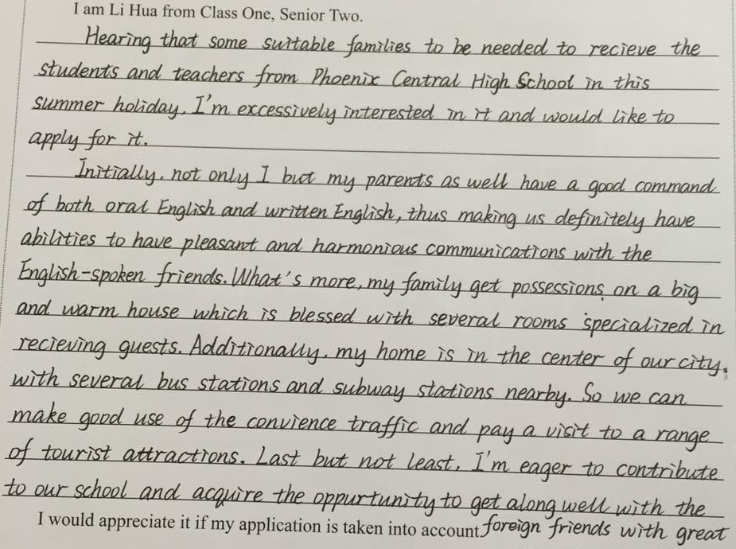 I am Li Hua from Class One, Senior Two.
Hearing that some suitable families to be needed to recieve the
students and teachers from Phoenix Central High School in this
summer holiday, I'm excessively interested in it and would like to
apply for it.
Initially, not only I but my parents as well have a good command
of both oral English and written English, thus making us definitely have
abilities to have pleasant and harmonious communications with the
English-spoken friends. What's more, my family get possessions on a big
and warm house which is blessed with several rooms specialized in
recieving guests. Additionally, my home is in the center of our city,
with several bus stations and subway stations nearby. So we can
make good use of the convience traffic and pay a visit to a range
of tourist attractions. Last but not least, I'm eager to contribute
to our school and acquire the oppurtunity to get along well with the
I would appreciate it if my application is taken into account. foreign friends with great